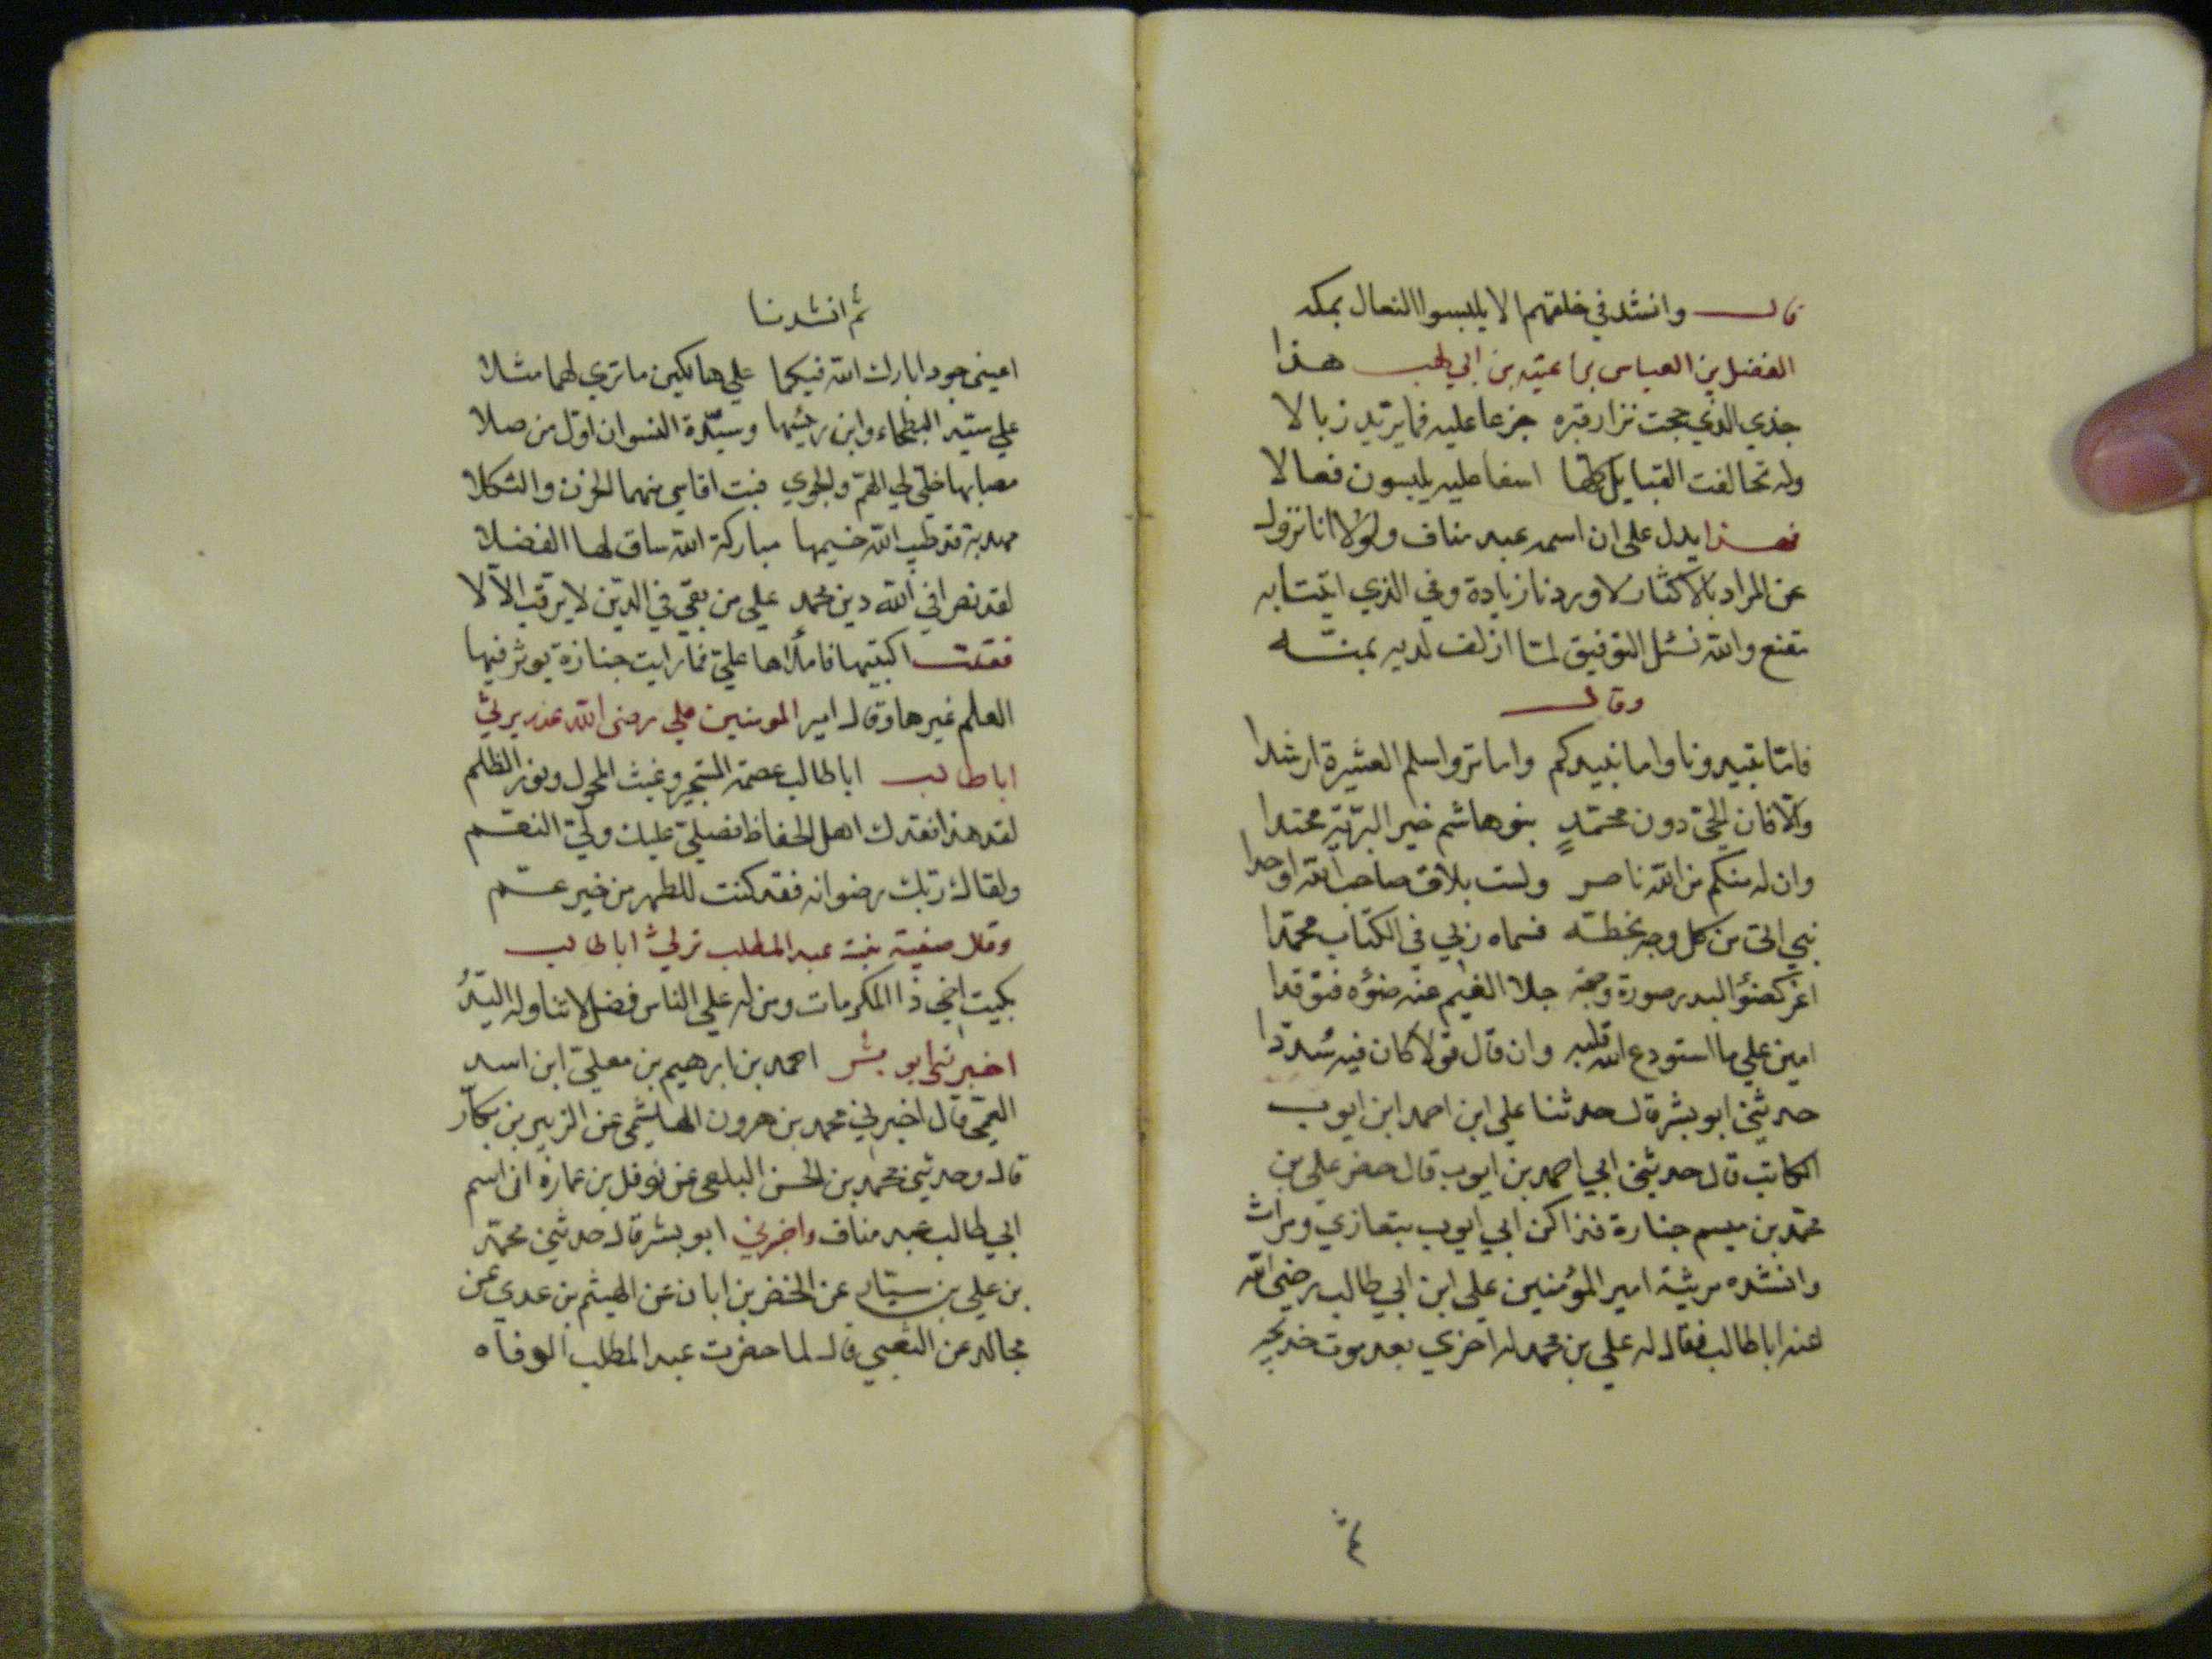 قال وانشد في خلعهم الا يلبسوا النعال بمكه
الفضل بن العباس بن عتبه بن ابي لهب هذا
جدي الذي حجت نزار قبره جزعا عليه فما يرتد زبالا
وله تحالفت القبايل كلها اسفا عليه يلبسون فعالا
فهذا يدل على ان اسمه عبد مناف ولولا انا نزول
عن المراد بالاكثار لاوردنا زيادة وفي الذي اتيتا به
مقنع والله نسئل التوفيق لما ازلف لديه بمنه
وقال
فاما تبيدونا واما نبيدكم واما تروا سلم العشيرة ارشدا
والا فان الحي دون محمدٍ بنو هاشم خير البرية محتدا
وان له منكم من الله ناصر ولست بلاق صاحب الله اوحدا
نبي اتى من كل وجه بخطه فسماه ربي في الكتاب محمدا
اغر كضوء البدر صورة وجهه جلا الغيم عنه ضوءه فتوقدا
امين على ما استودع الله قلبه وان قال قولا كان فيه سُددا
حدثني ابو بشر قال حدثنا علي ابن احمد ابن ايوب
الكاتب قال حدثني ابي احمد بن ايوب قال حضر علي بن
محمد بن ميسم جنازة فذاكر ابي ايوب بتعازي ومراث
وانشده مرثية امير المؤمنين علي ابن ابي طالب رضي الله
عنه ابا طالب فقال له علي بن محمد له اخري بعد موت خديجه
ثم انشدنا
اعيني جودا بارك الله فيكما على هالكين ما تري لهما مثلا
على سيد البطحاء وابن رئيسها وسيدة النسوان اول من صلا
مصابهما خلى لي الهم والجوي فبت اقاسي منهما الحزن والثكلا
مهذبة قد طيب الله خيمها مباركة الله ساق لها الفضلا
لقد نصرا في الله دين محمد على من بقى في الدين لا يرقب الالا
فقلت اكتبيها فاملاها علي فما رايت جنازة يوثر فيها
العلم غيرها وقال امير المومنين علي رضى الله عنه يرثي
ابا طالب ابا طالب عصمة المستجير وغيث المحول ونور الظلم
لقد هد فقدك اهل الحفاظ فصلى عليك ولي النعم
ولقاك ربك رضوانه فقد كنت للطهر من خير عم
وقال صفية بنت عبد المطلب ترثي ابا طالب
بكيت اخي ذا المكرمات ومن له على الناس فضل لا تناوله اليدُ
اخبرني ابو بشر احمد بن ابرهيم بن معلي ابن اسد
العمي قال اخبرني محمد بن هرون الهاشمي عن الزبير بن بكار
قال وحدثني محمد بن الحسن البلعي عن نوفل بن عمارة ان اسم
ابي طالب عبد مناف واخبرني ابو بشر قال حدثني محمد
بن علي بن سيار عن الخضر بن ابان عن الهيثم بن عدي عن
مجالد عن الشعبي قال لما حضرت عبد المطلب الوفاه